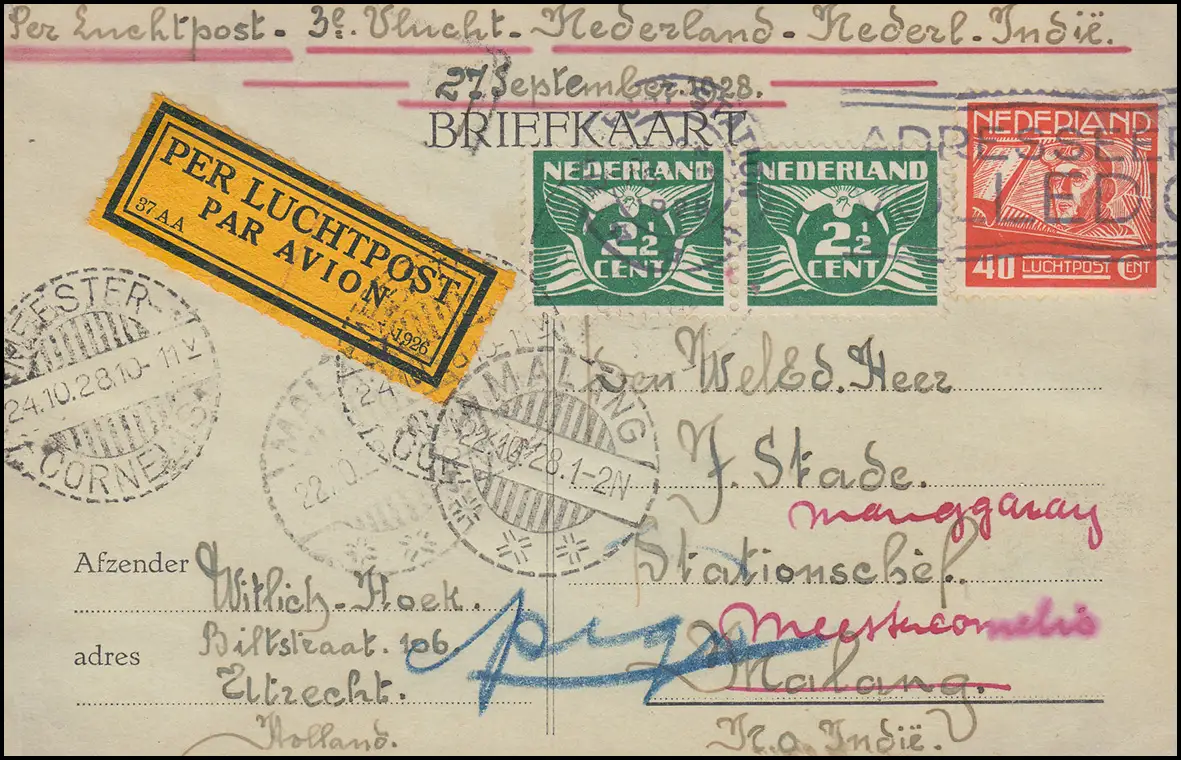 Per Luchtpost - 3e. Vlucht - Nederland - Nederl. Indië.
27 September 1928.
BRIEFKAART
PER LUCHTPOST
PAR AVION
37 AA
1926
NEDERLAND
2½
CENT
NEDERLAND
2½
CENT
NEDERLAND
40 LUCHTPOST CENT
ADRESSEER
VOLLEDIG
MEESTER-
24.10.28.10-11V
CORNELIS
MAL
22.10
24
MALANG
22.10.28.1-2N
Den WelEd. Heer
J. Stade.
manggaray
Stationschef.
Meestercornelis
Malang.
N.O. Indië.
Afzender Witlich-Hoek.
Biltstraat. 106.
adres
Utrecht.
Holland.